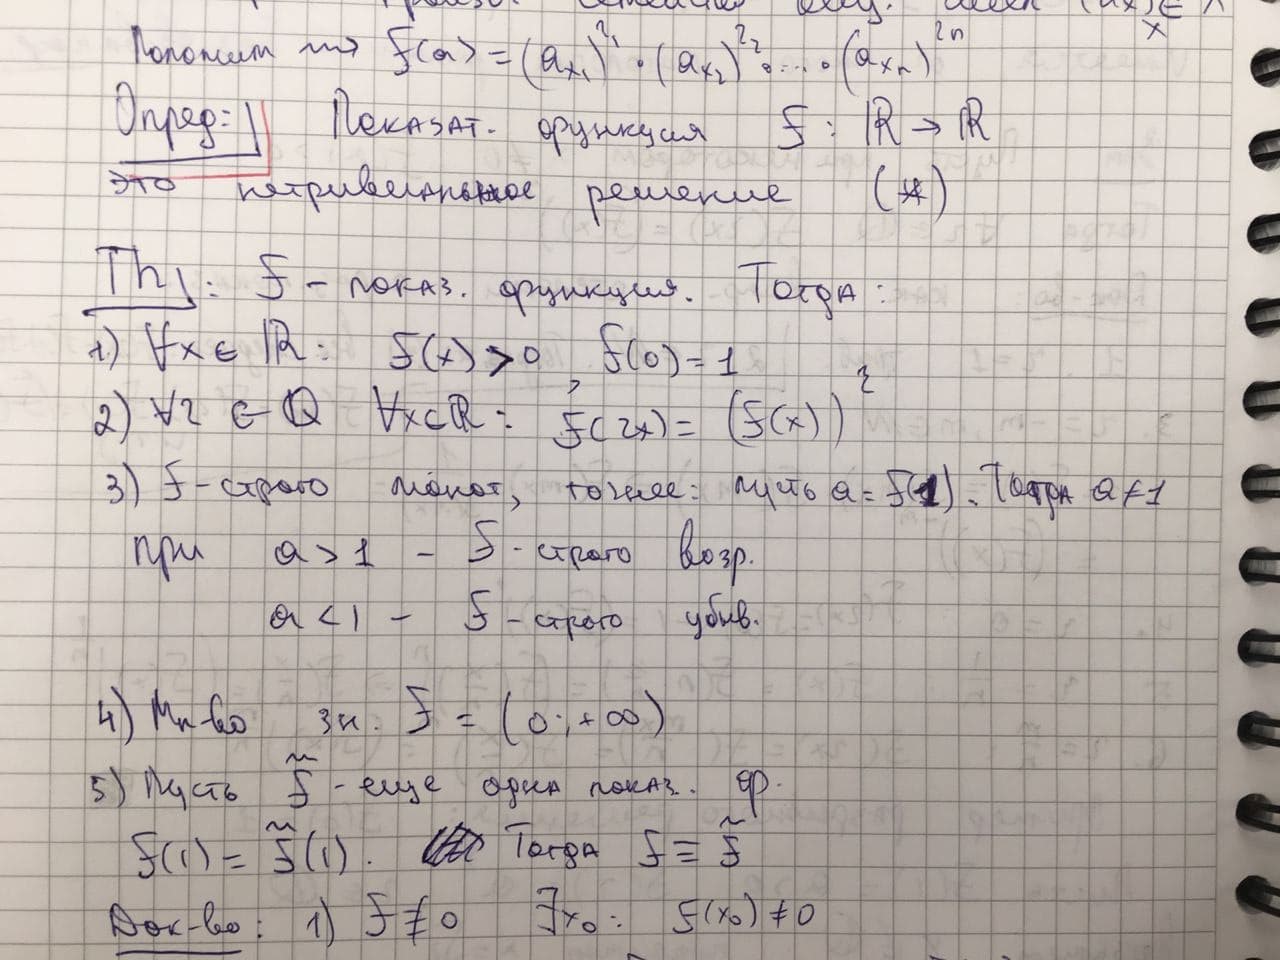 произв. семейство (a_x)_{x∈X}
Положим ⟿ f(a) = (a_{x_1})^{r_1} · (a_{x_2})^{r_2} · .... · (a_{x_n})^{r_n}
Опред: Показат. функция f: ℝ → ℝ
это нетривиальное решение (*)
Th: f - показ. функция. Тогда:
1) ∀x ∈ ℝ: f(x) > 0, f(0) = 1
2) ∀r ∈ ℚ ∀x ∈ ℝ: f(rx) = (f(x))^r
3) f - строго монот, точнее: пусть a = f(1). Тогда a ≠ 1
при a > 1 - f - строго возр.
a < 1 - f - строго убыв.
4) Мн-во зн. f = (0; +∞)
5) Пусть f̃ - еще одна показ. ф.
f(1) = f̃(1). Тогда f ≡ f̃
Док-во: 1) f ≢ 0 ∃x₀: f(x₀) ≠ 0